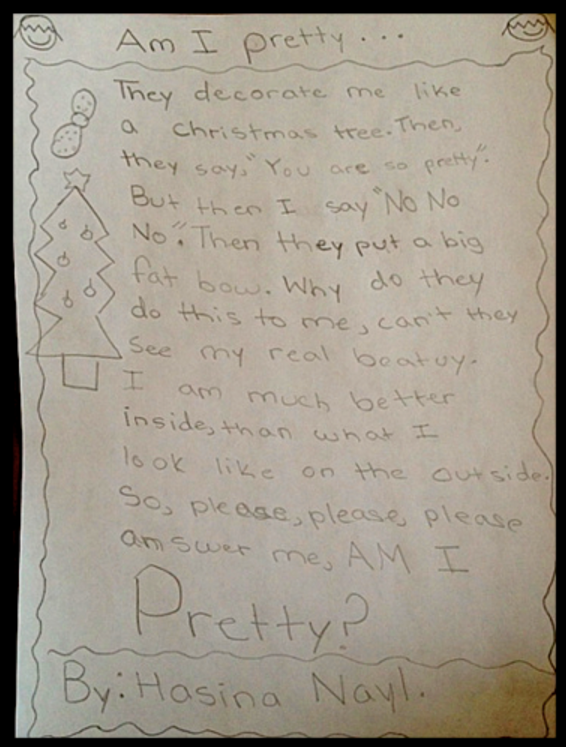 Am I pretty...
They decorate me like
a christmas tree. Then,
they say, "You are so pretty".
But then I say "No No
No". Then they put a big
fat bow. Why do they
do this to me, can't they
see my real beatuy.
I am much better
inside, than what I
look like on the outside.
So, please, please, please
answer me, AM I
Pretty?
By: Hasina Nayl.